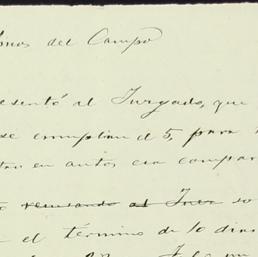 del Campo
esentó al Juzgado, que
se cumplian el 5, para
en autos esa compar
recusando al Juez so
el término de 10 dias